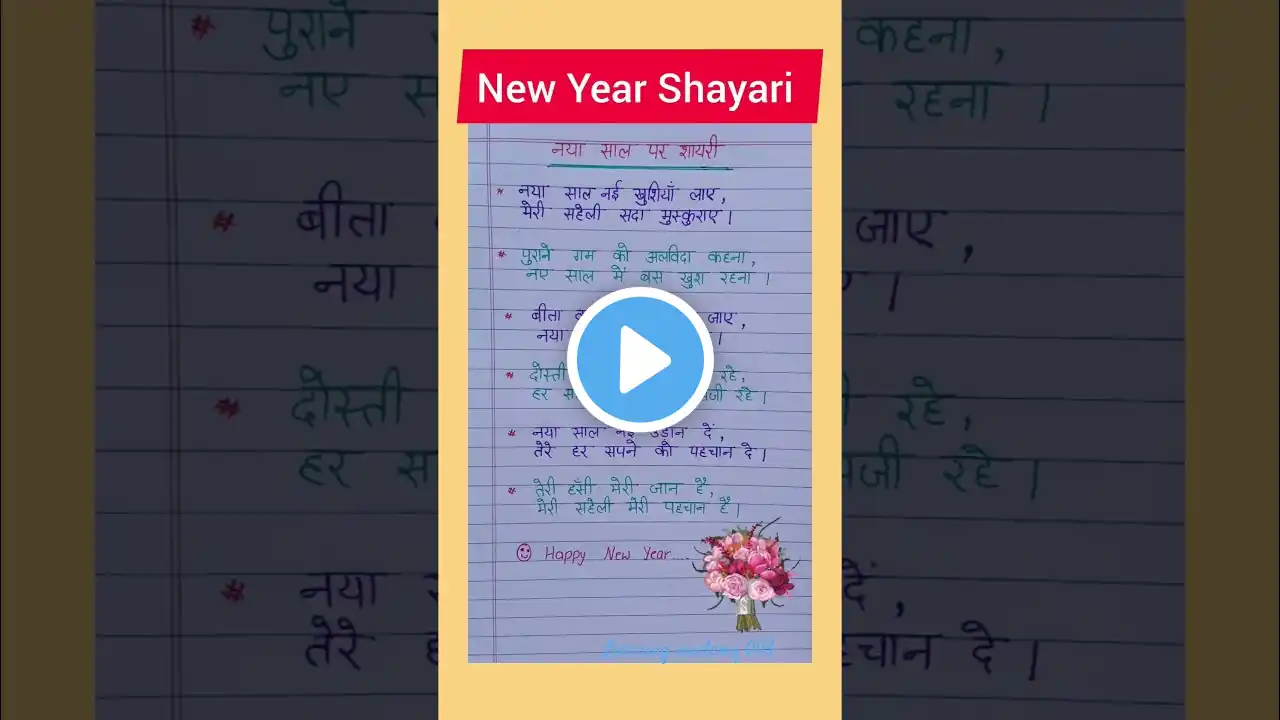 New Year Shayari
नया साल पर शायरी
* नया साल नई खुशियाँ लाए,
मेरी सहेली सदा मुस्कुराए।
* पुराने गम को अलविदा कहना,
नए साल में बस खुश रहना।
* बीता जाए,
नया ।
* दोस्ती रहे,
हर रहे।
* नया साल नई उड़ान दें,
तेरे हर सपने को पहचान दे।
* तेरी हँसी मेरी जान है,
मेरी सहेली मेरी पहचान है।
☺ Happy New Year....